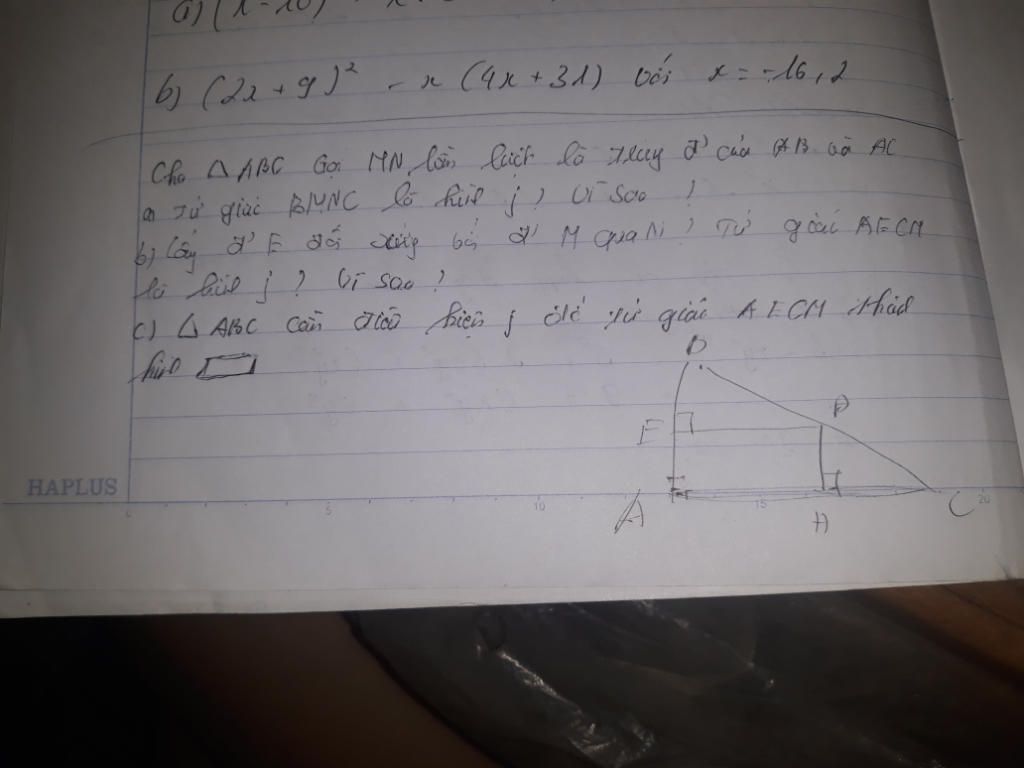 a) (x - 10)
b) (2x + 9)² - x (4x + 31) với x = -16,2
Cho △ABC Gọi MN lần lượt là trung đ' của AB và AC
a, Tứ giác BMNC là hình j? Vì sao?
b) Lấy đ' E đối xứng với đ' M qua N? Tứ giác AECM
là hình j? Vì sao?
c) △ABC cần điều kiện j để tứ giác AECM thành
hình
D
E
A
H
C
HAPLUS
5
10
15
20